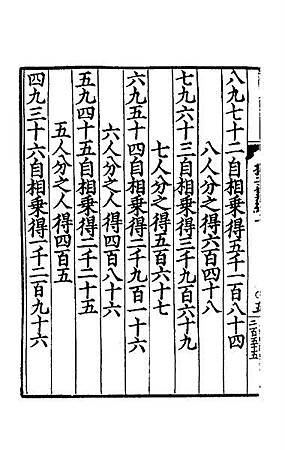 八九七十二自相乘得五千一百八十四
八人分之人得六百四十八
七九六十三自相乘得三千九百六十九
七人分之人得五百六十七
六九五十四自相乘得二千九百一十六
六人分之人得四百八十六
五九四十五自相乘得二千二十五
五人分之人得四百五
四九三十六自相乘得一千二百九十六